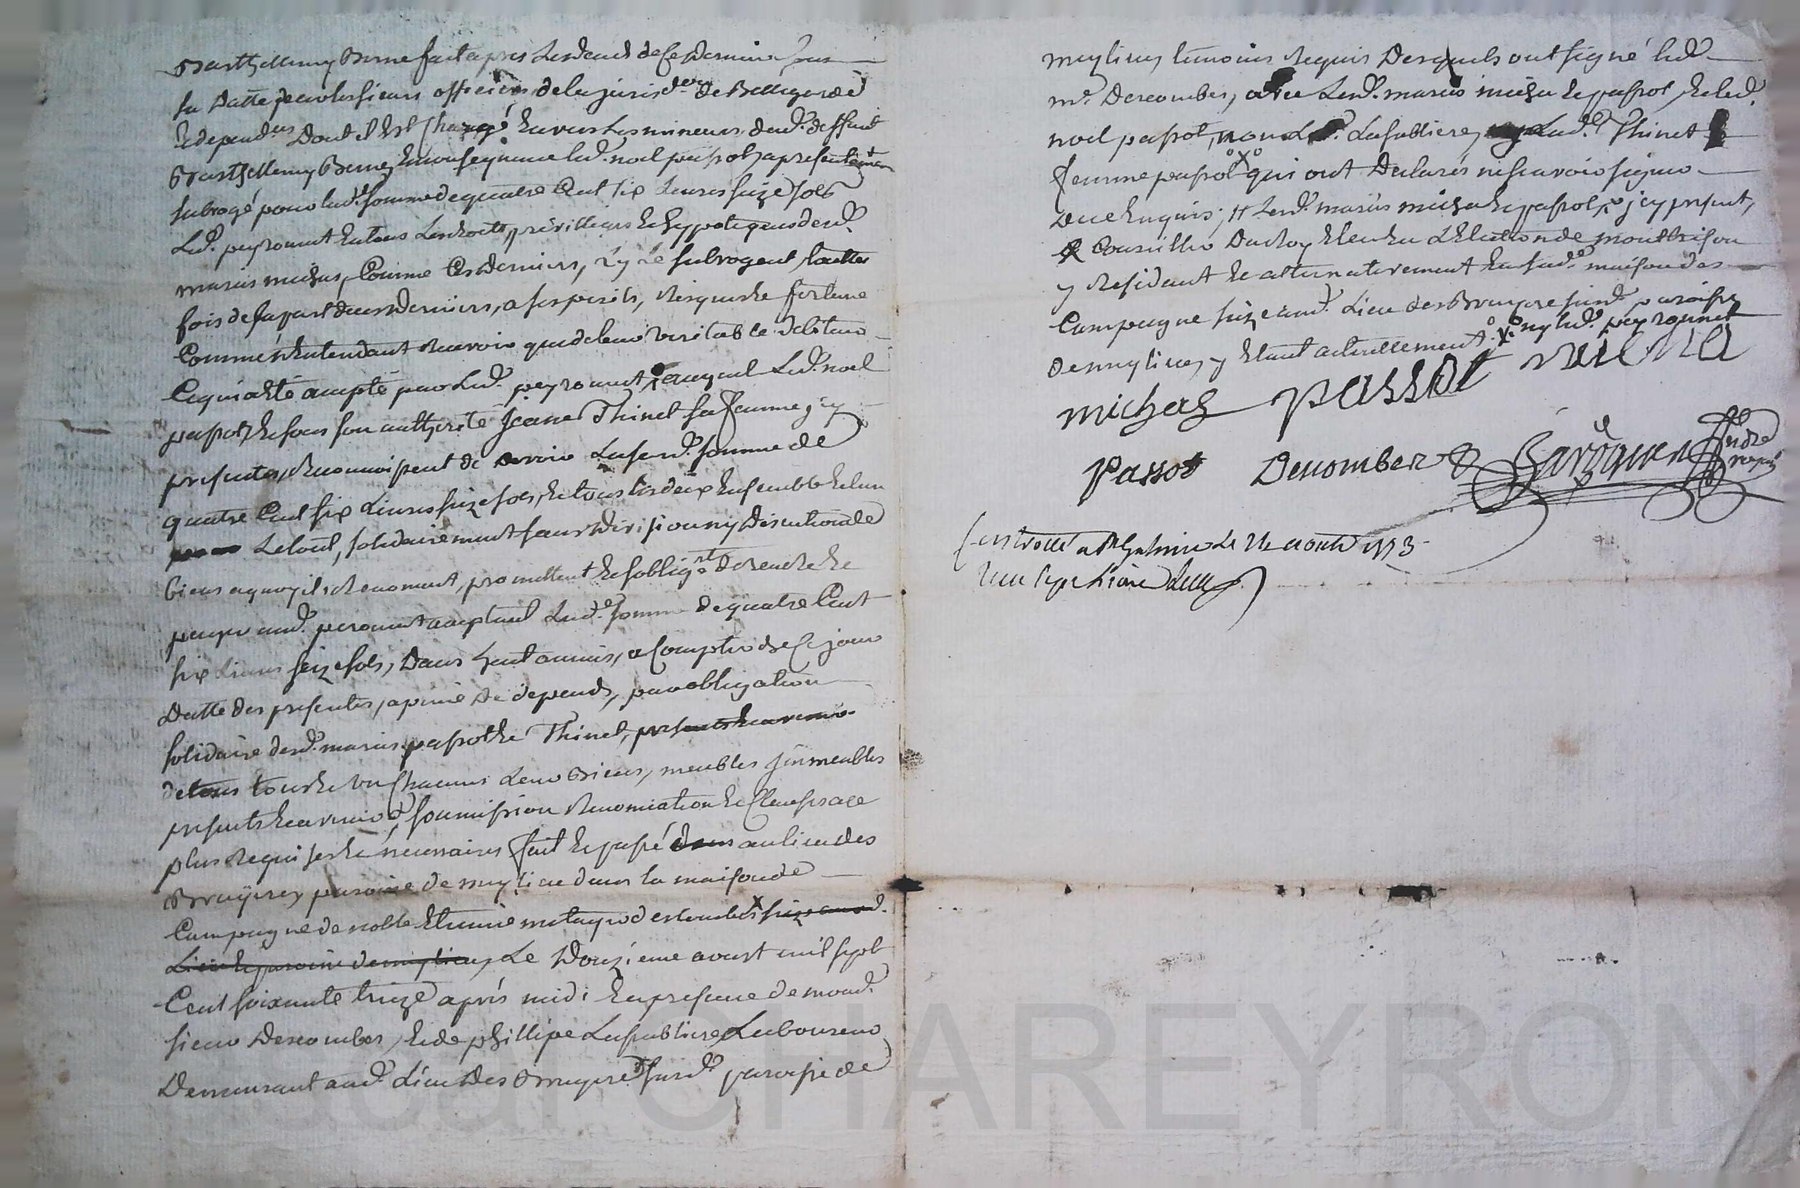 Barthellemy Berne fait apres le deceds de ce dernier sous
sa datte pardevant sieurs officiers de la jurisd.on de Bellegarde
& dependces dont il est chargé envers les mineurs dud. deffunt
Barthellemy Berne, en consequence led. noel passot a presentement
subrogé pour lad.e somme de quatre cent six livres seize sols
led. peyronnet en tous les droits, privilleges & hypoteques desd.
mariés michas, comme ces derniers, l'y subrogent, toutes
fois de la part de ces derniers, a ses perils, risques & fortune
comme n'entendant recevoir que de leur veritable debiteur
ce qui a été accepté par led. peyronnet, auquel led. noel
passot & sous son authorité Jeanne Thinet sa femme, icy
presentes, reconnoissent devoir lad. somme de
quatre cent six livres seize sols, & tous les deux ensemble & l'un
le tout, solidairement sans division ny discution de
biens a quoy ils renoncent, promettent & s'oblignt de rendre &
payer aud. peronnet acceptant lad.e somme de quatre cent
six livres seize sols, dans huit années, a compter de ce jour
datte des presentes, a peine de depends, par obligation
solidaire desd. mariés passot & Thinet, presents & avenir
de tous & un chacuns leurs Biens, meubles immeubles
presents & avenir, soumission renonciation & clauses
plus requises & necessaires fait & passé dans au lieu des
Bruyeres paroisse de meylieu dans la maison de
campagne de noble Etienne descombes size aud.
Lieu & paroisse de meylieu, Le Douzieme avout mil sept
Cent soixante treize après midi en presence de mond.
sieur Descombes, & de phillipe Lasabliere Laboureur
Demeurant aud. Lieu des Bruyere susd. paroisse de
meylieu, temoins requis desquels ont signé led.
mr. Descombes, avec lesd. mariés michas & passot, & led.
noel passot, non led. Lasabliere, lad.e Thinet
femme passot qui ont declarés ne scavoir signer
de ce enquis; lesd. mariés michas & passot, icy present,
Conseiller du Roy Eleu en L'Election de montbrison
y residant & alternativement en sad.e maison de
Campagne size aud. Lieu des Bruyere susd. paroisse
de meylieu, y etant actuellement. ny led. peyronnet
michas passot michas
Passot Descombes
Controllé a St Galmier le 24 aoust 1773